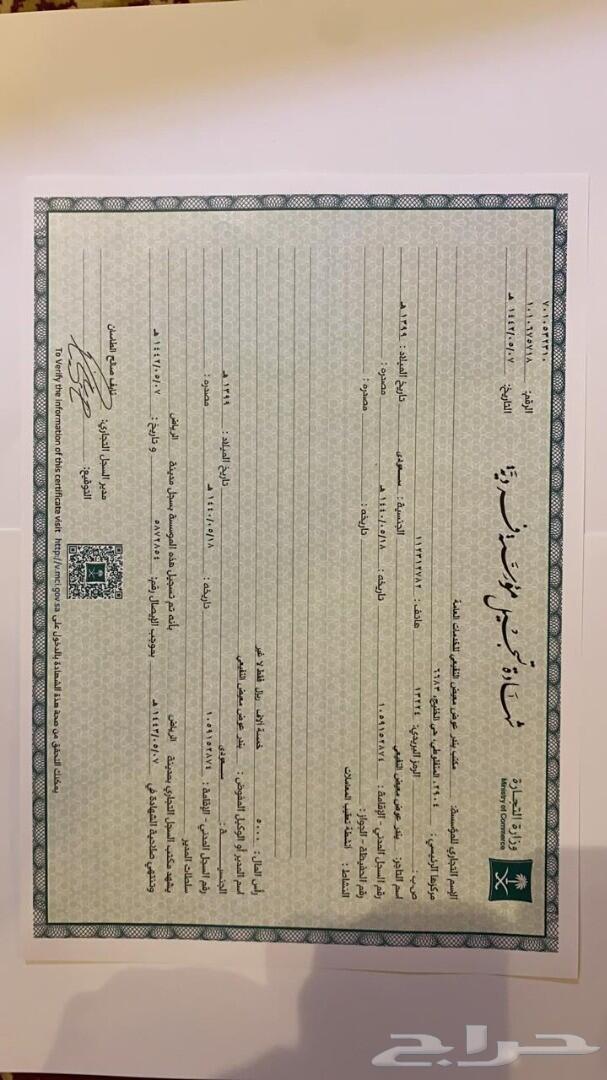 ٧٠١٠٥٣٢٣١٠
الرقم: ١٠١٠٦٧٥٧١٨
التاريخ: ١٤٤٢/٠٥/٠٧ هـ
وزارة التجارة
Ministry of Commerce
شهادة تسجيل مؤسسة فردية
الإسم التجاري للمؤسسة: مكتب بندر عوض معيض النفيعي للخدمات العامة
مركزها الرئيسي: ٢٩٠٤، حي الخليج، ٦٦٨٣
ص.ب: الرمز البريدي: ١٣٢٢٤ هاتف: ١١٢٣١٢٧٨٢
اسم التاجر: بندر عوض معيض النفيعي الجنسية: سعودى تاريخ الميلاد: ١٣٩٩ هـ
رقم السجل المدني - الإقامة: ١٠٥٩١٥٢٨٧٤ تاريخه: ١٤٤٠/٠٥/١٨ هـ مصدره:
رقم الحفيظة - الجواز: تاريخه: مصدره:
النشاط: أنشطة تعقيب المعاملات
رأس المال: ٥٠٠٠ خمسة آلاف ريال فقط لا غير
اسم المدير أو الوكيل المفوض: بندر عوض معيض النفيعي
الجنسية: سعودى تاريخ الميلاد: ١٣٩٩ هـ
رقم السجل المدني - الإقامة: ١٠٥٩١٥٢٨٧٤ تاريخه: ١٤٤٠/٠٥/١٨ هـ مصدره:
سلطات المدير
يشهد مكتب السجل التجاري بمدينة الرياض بأنه تم تسجيل هذه المؤسسة بسجل مدينة الرياض
وتنتهي صلاحية الشهادة في ١٤٤٣/٠٥/٠٧ بموجب الإيصال رقم: ٥٨٧٢٨٥٤ و تاريخ: ١٤٤٢/٠٥/٠٧ هـ
مدير السجل التجاري: نايف صالح الطاسان
التوقيع:
يمكنك التحقق من صحة هذة الشهادة بالدخول على To Verify the information of this certificate visit : http://v.mci.gov.sa
حراج